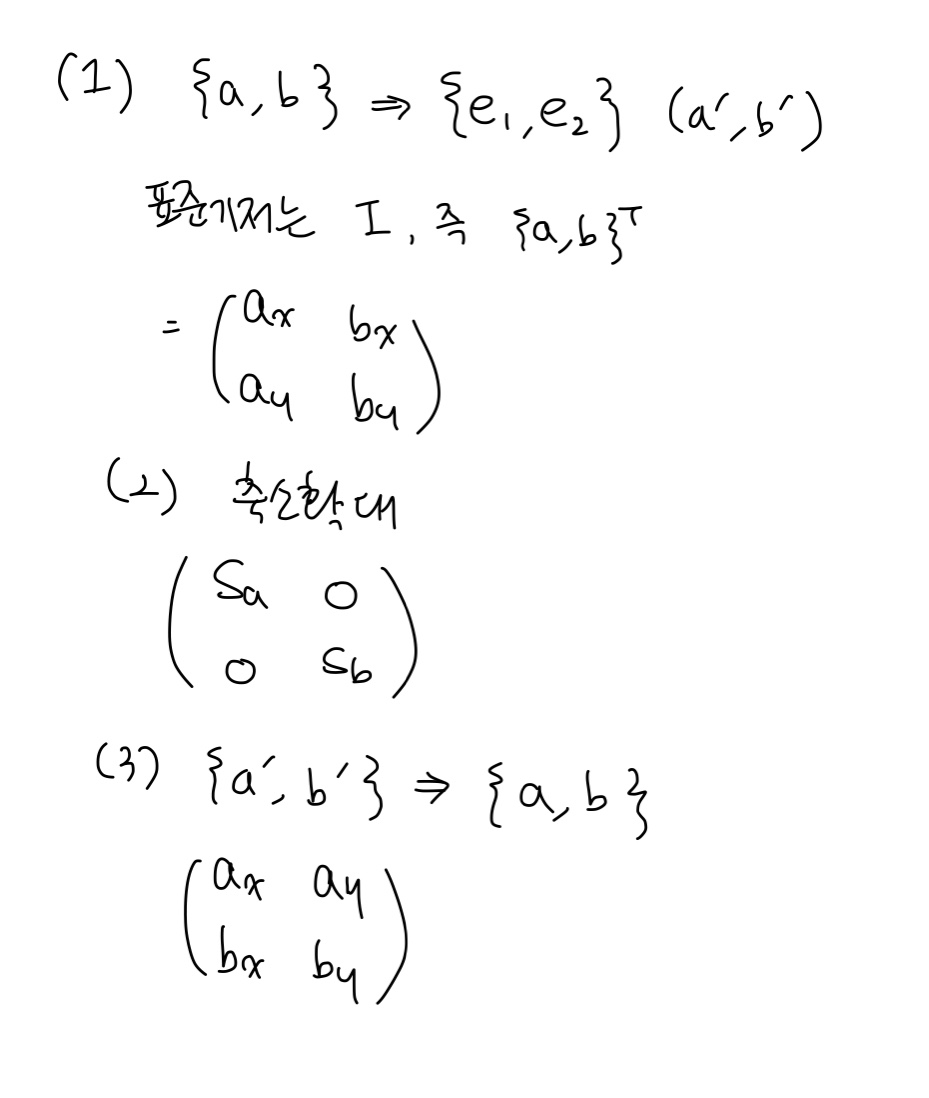 (1) {a, b} ⇒ {e₁, e₂} (a′, b′)
표준기저는 I, 즉 {a, b}ᵀ
= (ax bx
ay by)
(2) 축소확대
(Sa 0
0 Sb)
(3) {a′, b′} ⇒ {a, b}
(ax ay
bx by)